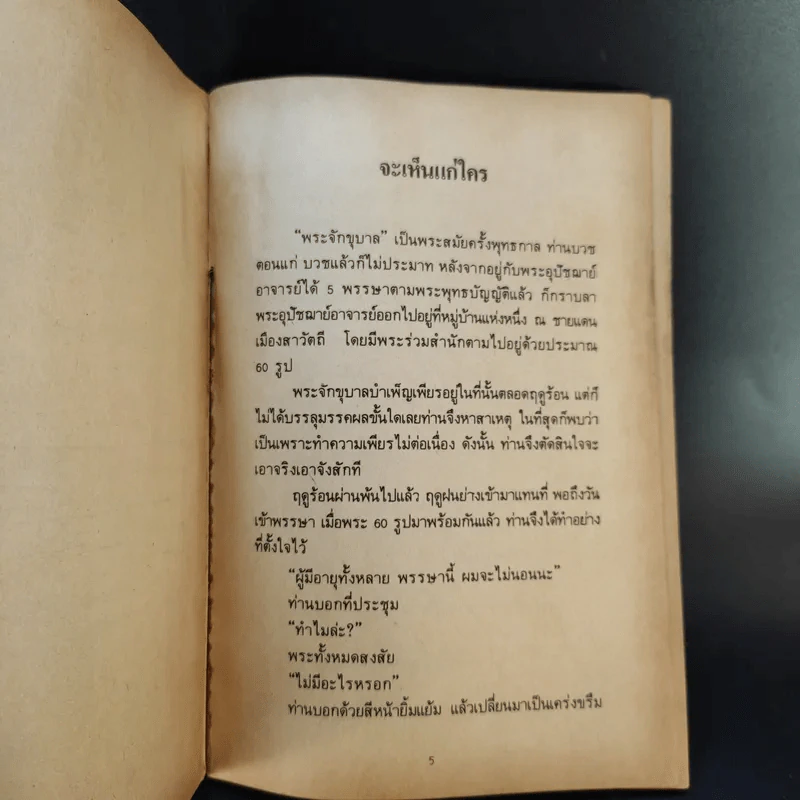 จะเห็นแก่ใคร
“พระจักขุบาล” เป็นพระสมัยครั้งพุทธกาล ท่านบวช
ตอนแก่ บวชแล้วก็ไม่ประมาท หลังจากอยู่กับพระอุปัชฌาย์
อาจารย์ได้ 5 พรรษาตามพระพุทธบัญญัติแล้ว ก็กราบลา
พระอุปัชฌาย์อาจารย์ออกไปอยู่ที่หมู่บ้านแห่งหนึ่ง ณ ชายแดน
เมืองสาวัตถี โดยมีพระร่วมสำนักตามไปอยู่ด้วยประมาณ
60 รูป
พระจักขุบาลบำเพ็ญเพียรอยู่ในที่นั้นตลอดฤดูร้อน แต่ก็
ไม่ได้บรรลุมรรคผลขั้นใดเลยท่านจึงหาสาเหตุ ในที่สุดก็พบว่า
เป็นเพราะทำความเพียรไม่ต่อเนื่อง ดังนั้น ท่านจึงตัดสินใจจะ
เอาจริงเอาจังสักที
ฤดูร้อนผ่านพ้นไปแล้ว ฤดูฝนย่างเข้ามาแทนที่ พอถึงวัน
เข้าพรรษา เมื่อพระ 60 รูปมาพร้อมกันแล้ว ท่านจึงได้ทำอย่าง
ที่ตั้งใจไว้
“ผู้มีอายุทั้งหลาย พรรษานี้ ผมจะไม่นอนนะ”
ท่านบอกที่ประชุม
“ทำไมล่ะ?”
พระทั้งหมดสงสัย
“ไม่มีอะไรหรอก”
ท่านบอกด้วยสีหน้ายิ้มแย้ม แล้วเปลี่ยนมาเป็นเคร่งขรึม
5